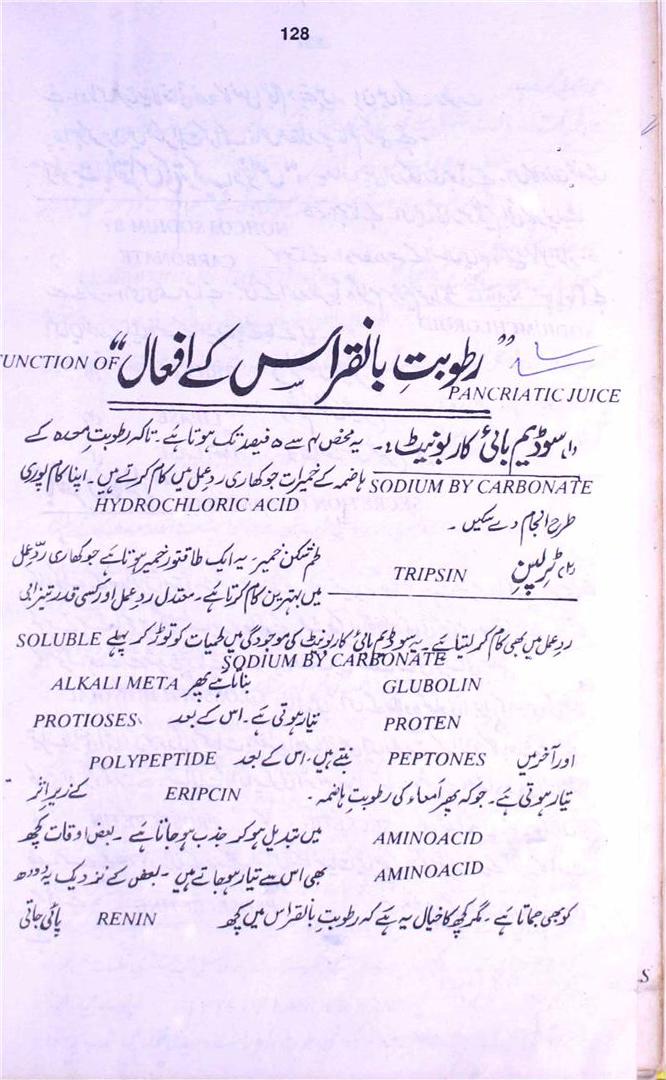 128
"رطوبتِ بانقراس کے افعال"
FUNCTION OF PANCRIATIC JUICE
(۱) سوڈیم بائی کاربونیٹ :۔ یہ محض ۴ سے ۵ فیصد تک ہوتا ہے۔ تاکہ رطوبتِ معدہ کے
SODIUM BY CARBONATE ہاضمہ کے خمیرات جو کھاری ردِ عمل میں کام کرتے ہیں۔ اپنا کام پوری
HYDROCHLORIC ACID
طرح انجام دے سکیں۔
(۲) ٹرپسن TRIPSIN لحم شکن خمیر۔ یہ ایک طاقتور خمیر ہوتا ہے جو کھاری ردِّ عمل
میں بہترین کام کرتا ہے۔ معتدل ردِ عمل اور کسی قدر تیزابی
ردِ عمل میں بھی کام کر لیتا ہے۔ یہ سوڈیم بائی کاربونیٹ کی موجودگی میں لحمیات کو توڑ کر پہلے SOLUBLE
SODIUM BY CARBONATE
GLUBOLIN بناتا ہے پھر ALKALI META
PROTEN تیار ہوتی ہے۔ اس کے بعد PROTIOSES
اور آخر میں PEPTONES بنتے ہیں۔ اس کے بعد POLYPEPTIDE
تیار ہوتی ہے۔ جو کہ پھر امعاء کی رطوبت ہاضمہ۔ ERIPCIN کے زیرِ اثر
AMINOACID میں تبدیل ہو کر جذب ہو جاتا ہے۔ بعض اوقات کچھ
AMINOACID بھی اس سے تیار ہو جاتے ہیں۔ بعض کے نزدیک یہ دودھ
کو بھی جماتا ہے۔ مگر کچھ کا خیال یہ ہے کہ رطوبتِ بانقراس میں کچھ RENIN پائی جاتی
S